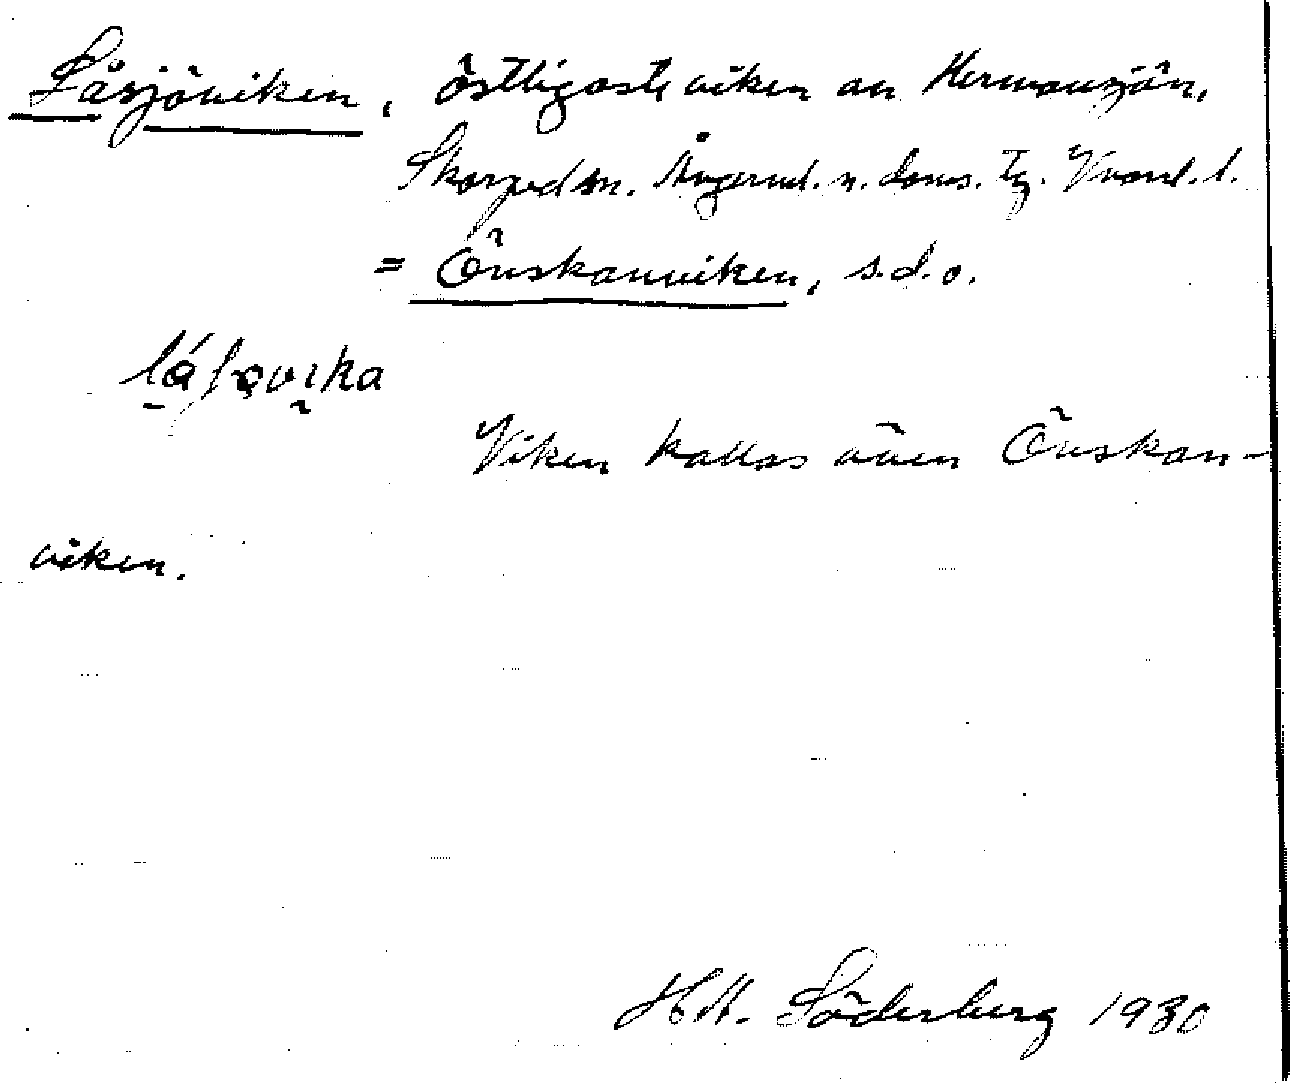 Låsjöviken, östligaste viken av Hermansjön,
Skorped sn. Ångerml. n. doms. tg. Vnorrl. l.
= Önskanviken, s.d.o.
Viken kallas även Önskan-
viken.
H. Söderberg 1930